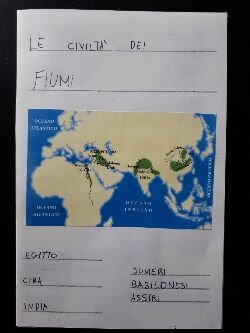 LE CIVILTÀ DEI
FIUMI
OCEANO
ATLANTICO
OCEANO
ATLANTICO
OCEANO
INDIANO
INDIA
EGITTO
CINA
INDIA
SUMERI
BABILONESI
ASSIRI